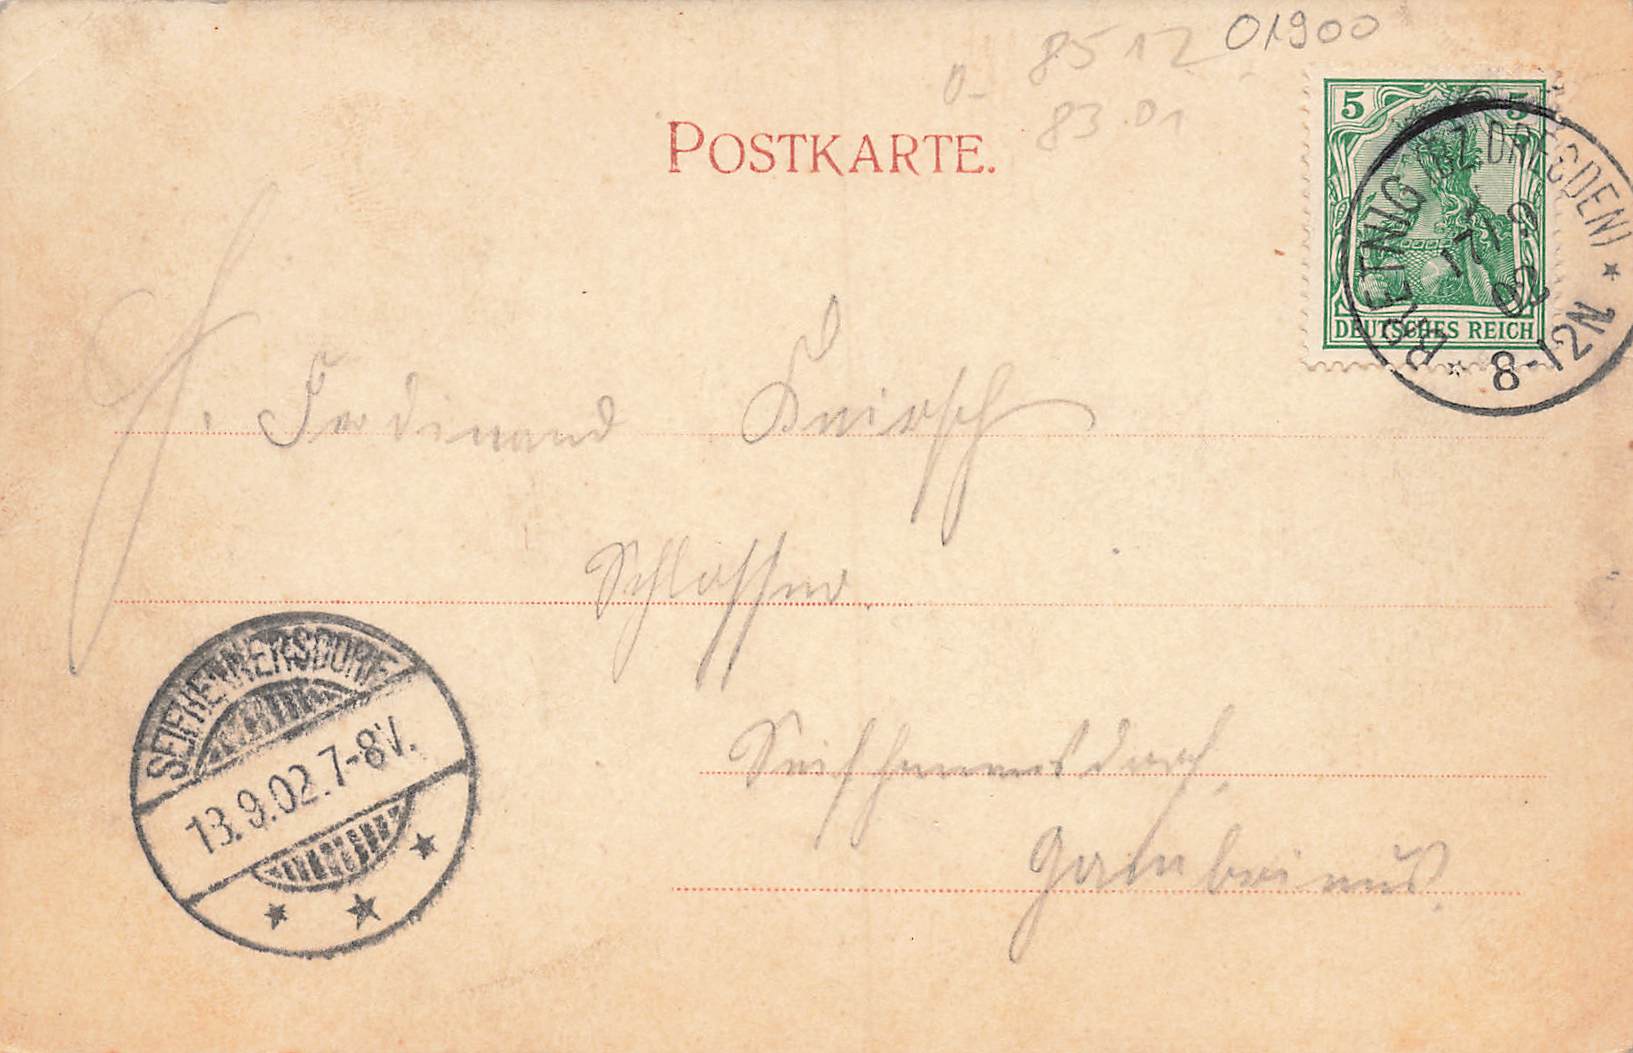 01900
8512
0-
83.01
POSTKARTE.
5 5
DEUTSCHES REICH
BRETNIG (BZ. DRESDEN)
9 02
8-12N
H. Ferdinand Knirsch
Schlosser.
Seifhennersdorf,
Gambrinus.
SEIFHENNERSDORF
13.9.02.7-8V.